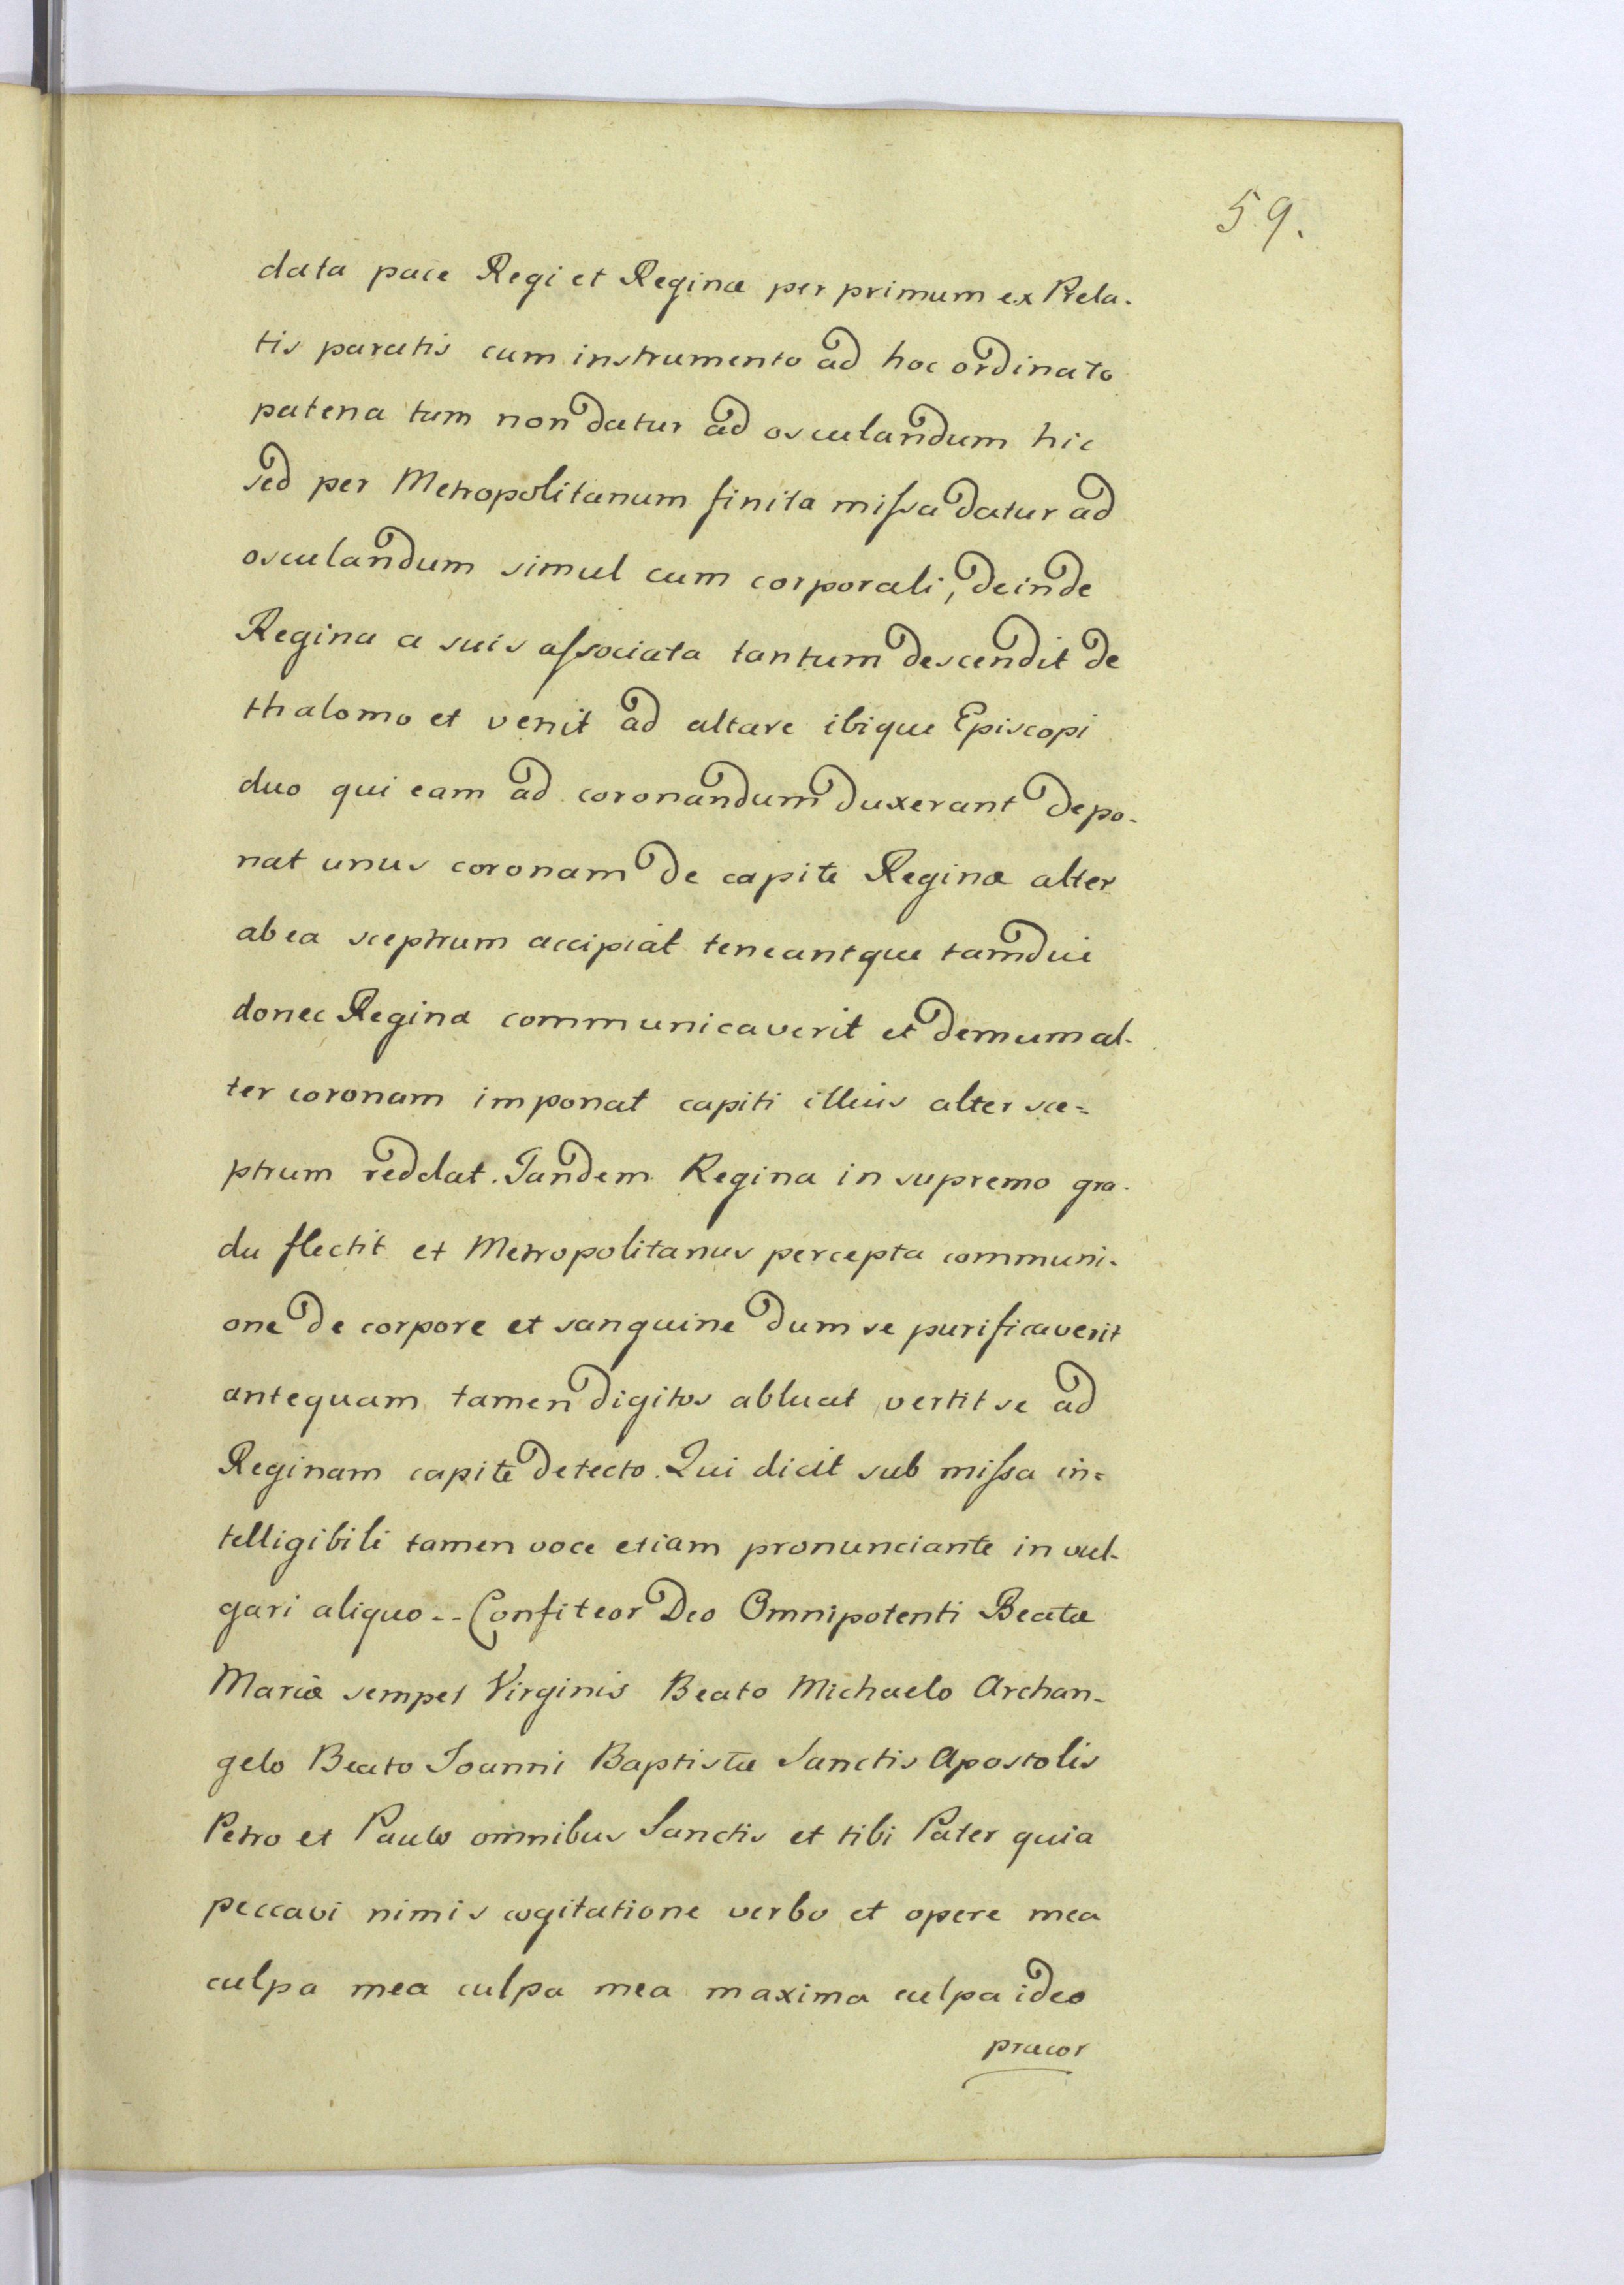 59.
data pace Regi et Reginæ per primum ex Prela-
tis paratis cum instrumento ad hoc ordinato
patena tum non datur ad osculandum hic
sed per Metropolitanum finita missa datur ad
osculandum simul cum corporali, deinde
Regina a suis associata tantum descendit de
thalomo et venit ad altare ibique Episcopi
duo qui eam ad coronandum duxerant depo-
nat unus coronam de capite Reginæ alter
ab ea sceptrum accipiat teneantque tamdiu
donec Regina communicaverit et demum al-
ter coronam imponat capiti illius alter sce=
ptrum reddat. Tandem Regina in supremo gra-
du flectit et Metropolitanus percepta communi-
one de corpore et sanguine dum se purificaverit
antequam tamen digitos abluat vertit se ad
Reginam capite detecto. Qui dicit sub missa in=
telligibili tamen voce etiam pronunciante in vul-
gari aliquo -- Confiteor Deo Omnipotenti Beatæ
Mariæ semper Virginis Beato Michaelo Archan-
gelo Beato Joanni Baptistæ Sanctis Apostolis
Petro et Paulo omnibus Sanctis et tibi Pater quia
peccavi nimis cogitatione verbo et opere mea
culpa mea culpa mea maxima culpa ideo
præcor